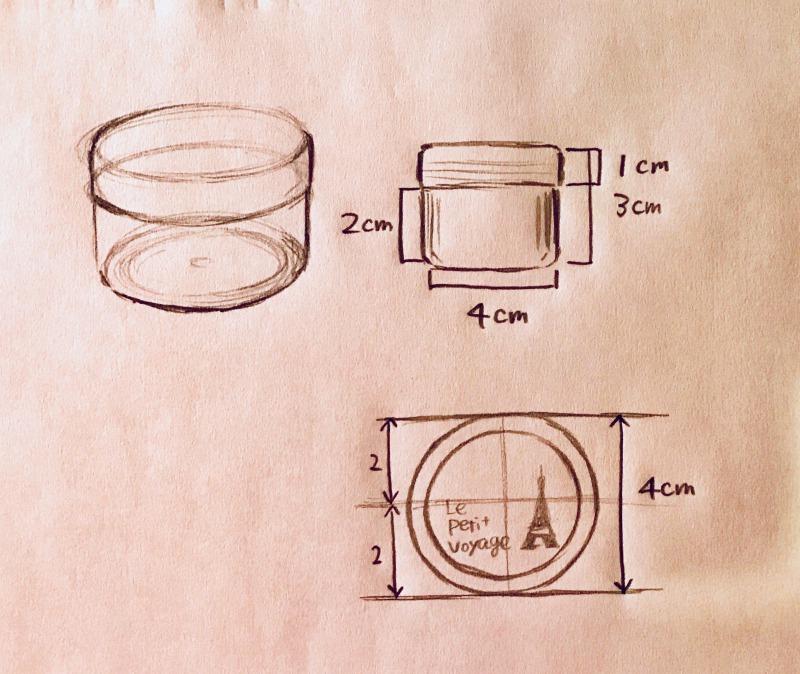 1cm
3cm
2cm
4cm
2
4cm
Le
Petit
Voyage
2